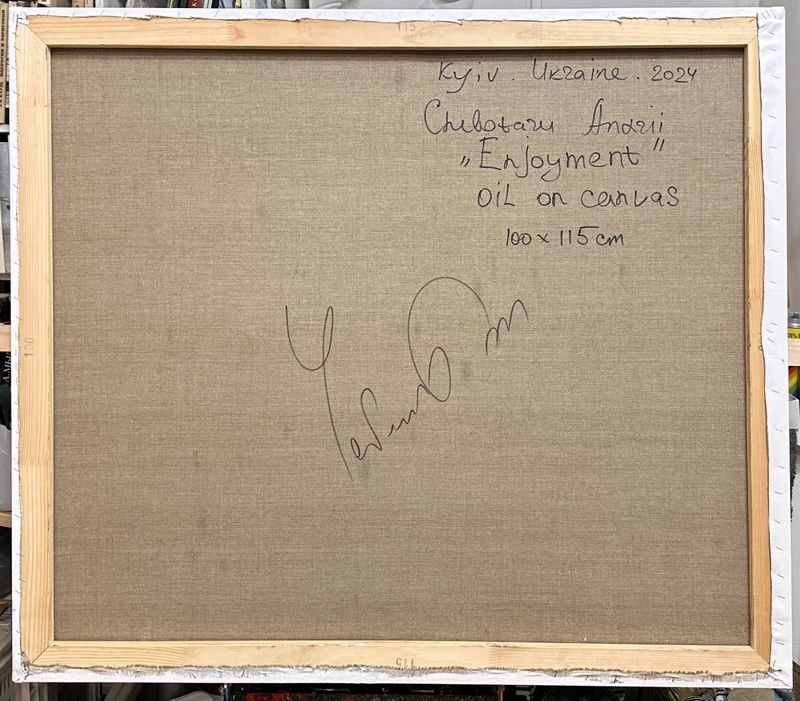 115
Kyiv. Ukraine. 2024
Chebotaru Andrii
„Enjoyment”
oil on canvas
100 x 115 cm
100
115